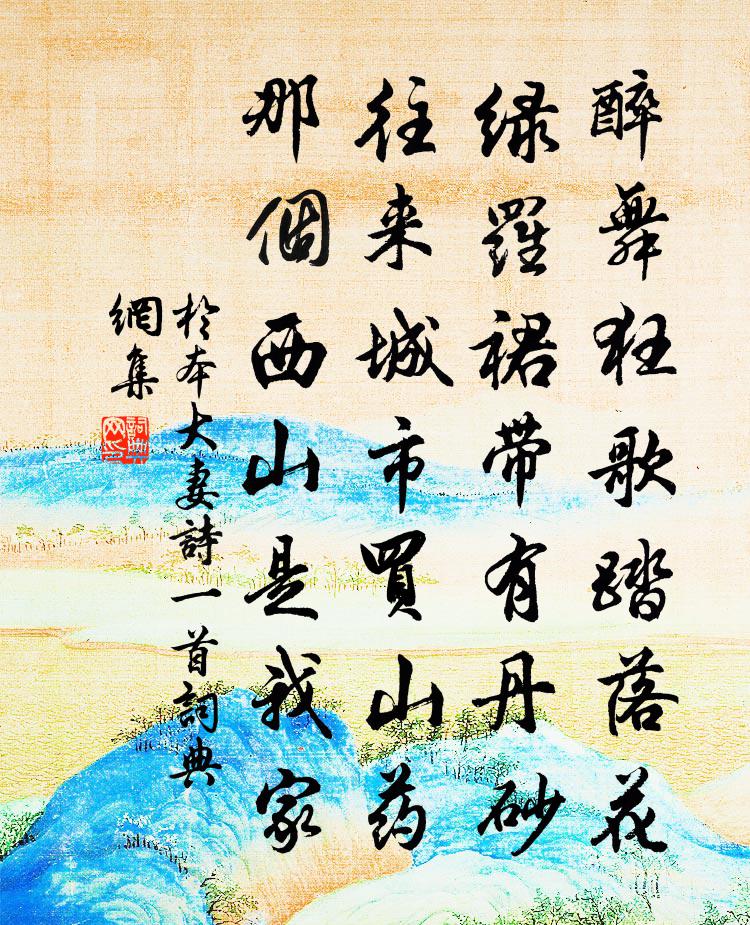 醉舞狂歌踏落花
绿羅裙带有丹砂
往来城市買山药
那個西山是我家
於本大妻詩一首詞典
網集
詞典